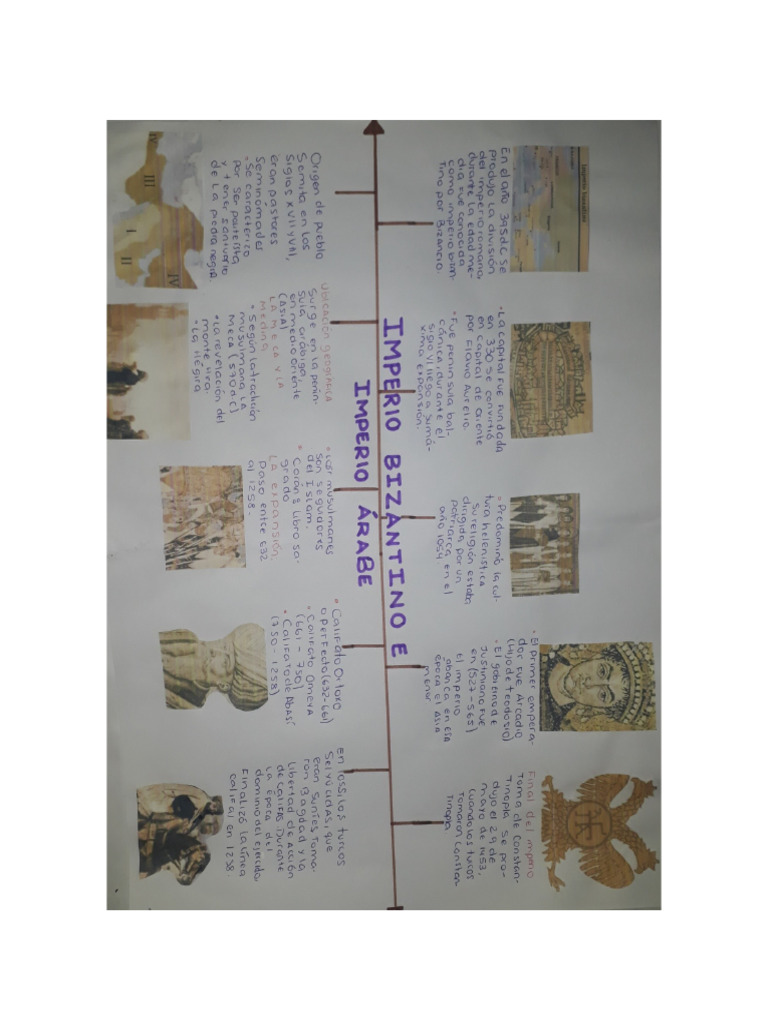 IMPERIO BIZANTINO E
IMPERIO ÁRABE
Imperio bizantino
En el año 395 d.C se
produjo la división
del imperio romano
durante la edad me-
dia fue conocida
como imperio bizan-
tino por Bizancio.
• La capital fue fundada
en 330 se convirtió
en capital de oriente
por Flavio Aurelio.
• Fue península bal-
cánica, durante el
siglo VI llego a su má-
xima expansión.
• Predominó la cul-
tura helenística
su religión estaba
dirigida por un
patriarca en el
año 1054
• El primer empera-
dor fue Arcadio
(Hijo de Teodosio)
• El gobierno de
Justiniano fue
en (527 - 565)
El imperio
abarca en esa
epoca el Asia
menor
Final del imperio
Toma de Constan-
tinopla se pro-
dujo el 29 de
mayo de 1453,
cuando los turcos
tomaron Constan
tinopla
Origen de pueblo
Semita en los
Siglos XVII y VII,
eran pastores
seminomades
• Se caracterizo
por ser politeísta
y tener santuario
de la piedra negra.
IV
III
I
II
IV
UBICACIÓN GEOGRAFICA
Surge en la penín-
sula arábiga,
en medio oriente
(ASIA)
LA MECA Y LA
Medina
• Según la tradición
musulmana, LA
Meca (570 d.C)
• La revelación del
monte Hira.
• La Hégira
• Los musulmanes
son seguidores
del Islam.
• Corán: Libro sa-
grado
La expansión,
Paso entre 632
al 1258.
• Califato Ortodoxo
o perfecto (632-661)
• Califato Omeya
(661 - 750)
• Califato de Abasí
(750 - 1258)
en los turcos
Selyúcidas, que
eran suníes toma-
ron Bagdad y la
libertad de acción
de califas. Durante
la época del
dominio del ejercito,
Finalizó la línea
califal en 1258.